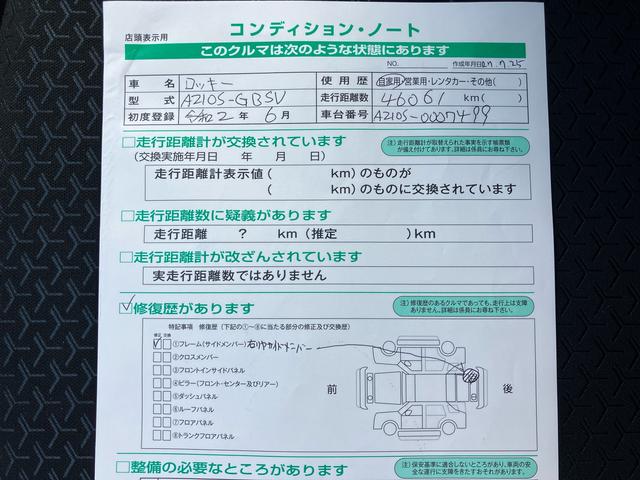 店頭表示用
コンディション・ノート
このクルマは次のような状態にあります
NO.
作成年月日 27.7.25
車名 ロッキー 使用歴 自家用・営業用・レンタカー・その他( )
型式 A210S-GBSV 走行距離数 46061 km( )
初度登録 令和2年6月 車台番号 A210S-0007499
□走行距離計が交換されています
(交換実施年月日 年 月 日)
注)走行距離計が取替えられた事実を示す帳票類が備え付けてあります。詳細は係員にお尋ね下さい。
走行距離計表示値( km)のものが
( km)のものに交換されています
□走行距離数に疑義があります
走行距離 ? km(推定 )km
□走行距離計が改ざんされています
実走行距離数ではありません
☑修復歴があります
注)修復歴のあるクルマであっても、走行上は支障ありません。詳細は係員にお尋ね下さい。
特記事項 修復歴(下記の①~⑧に当たる部分の修正及び交換歴)
修正 交換
①フレーム(サイドメンバー) 右リヤサイドメンバー
②クロスメンバー
③フロントインサイドパネル
④ピラー(フロント・センター及びリアー)
⑤ダッシュパネル
⑥ルーフパネル
⑦フロアパネル
⑧トランクフロアパネル
前
後
□整備の必要なところがあります
注)保安基準に適合しないところがあり、車両の安全な運行に支障をきたすおそれがあります。